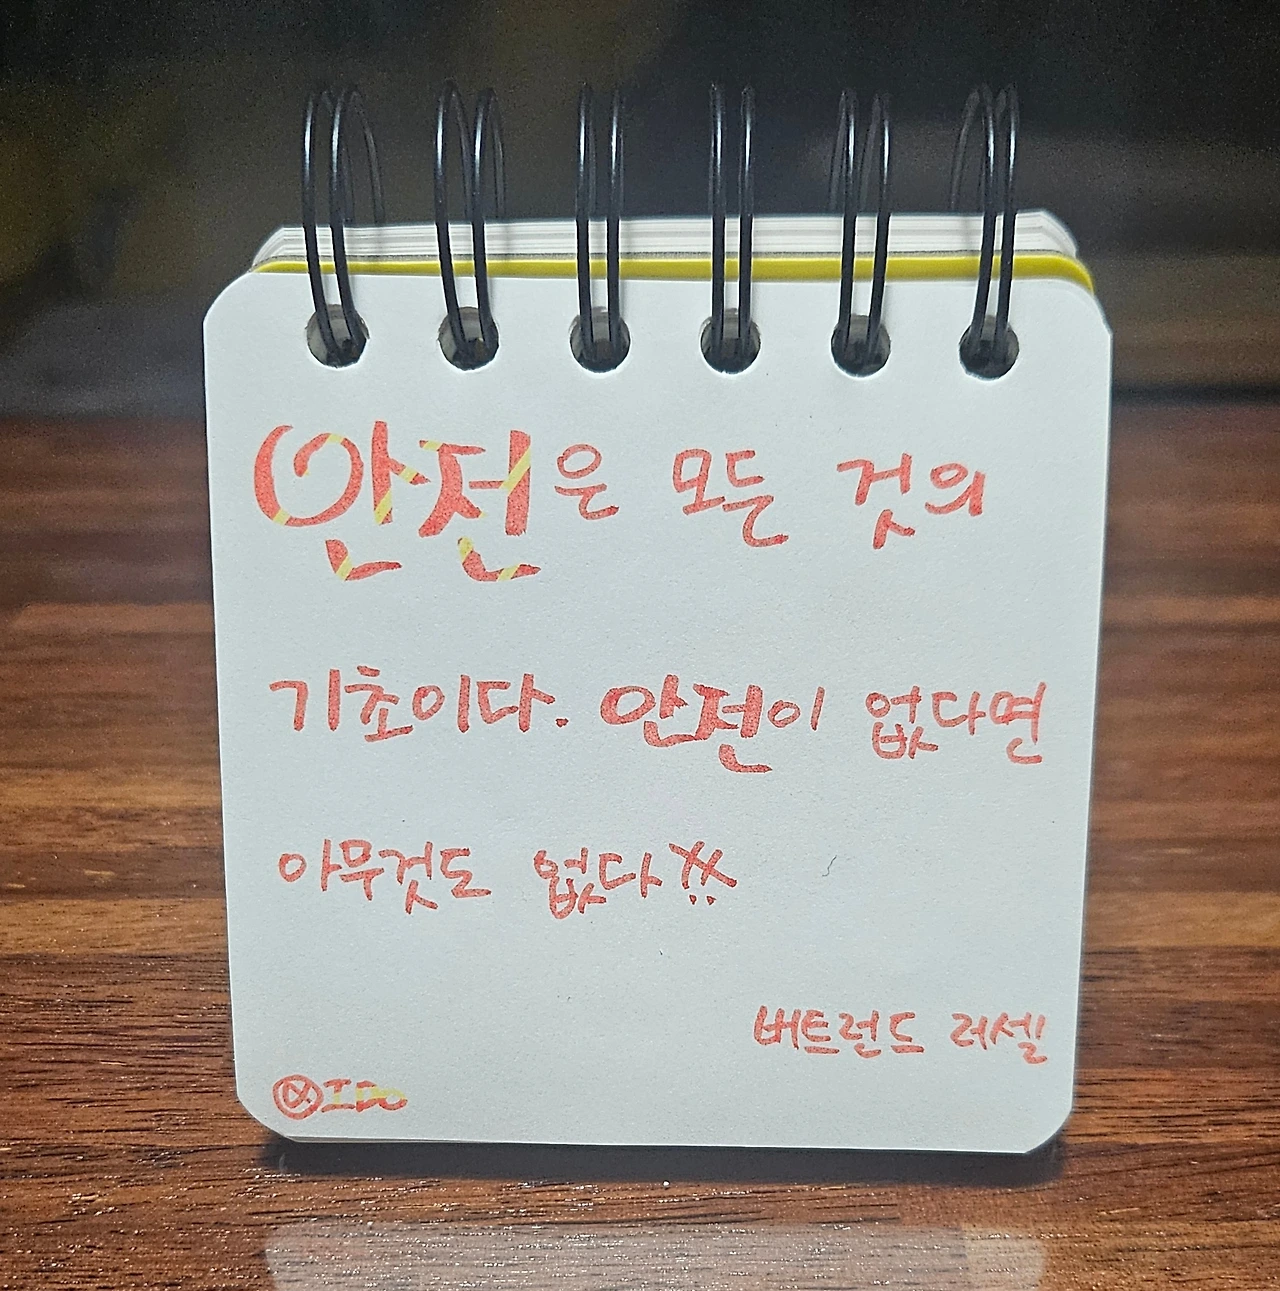 안전은 모든 것의
기초이다. 안전이 없다면
아무것도 없다!!
버트런드 러셀
IDO